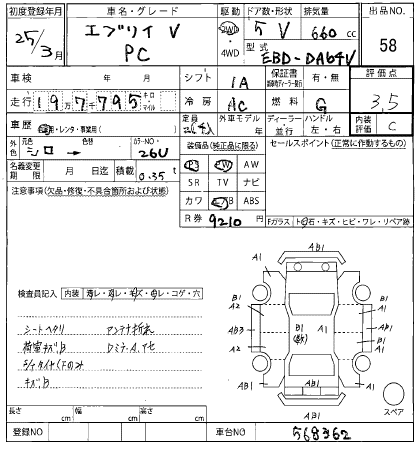 初度登録年月 車名・グレード 駆動 ドア数・形状 排気量 出品NO.
25年 3月 エブリイ V PC 2WD ・ 4WD 5 V 660 cc 58
型式 EBD-DA64V
車検 年 月 シフト 1A 保証書 有・無 評価点
走行 19万7795 キロ・マイル 冷房 AC 燃料 G 3.5
車歴 自家・レンタ・事業用( ) 定員 2(4)人 外車モデル 年 ディーラー・並行 ハンドル 左・右 内装評価 C
元色 シロ → 色替 カラーNO・ 26U 装備品(純正品に限る) セールスポイント(正常に作動するもの)
名義変更期限 月 日迄 積載 0.35 t PS PW AW
SR TV ナビ
注意事項(欠品・修復・不具合箇所および状態) カワ エアB ABS
R券 9210 円 Fガラス トビ石・キズ・ヒビ・ワレ・リペア跡
検査員記入 内装 汚レ・コゲ・穴
シートヘタリ アンテナ折れ
荷室キズB
キズB
A1 AB1
B1 A1
A2 B1
AB3 B1 A1
A2 A1
A1 A1
AB1 スペア
長さ cm 幅 cm 高さ cm
登録NO 車台NO 568362